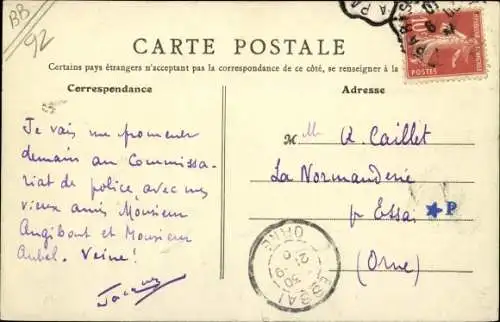 BB
92
CARTE POSTALE
Certains pays étrangers n'acceptant pas la correspondance de ce côté, se renseigner à la
Correspondance
Adresse
Je vais me promener
demain au Commissa-
riat de police avec mes
vieux amis Monsieur
Angibout et Monsieur
Aubel. Veine!
Jacques
M Caillet
La Normanderie
pr Essai
(Orne)
P
ESSAI
ORNE
POSTES
10